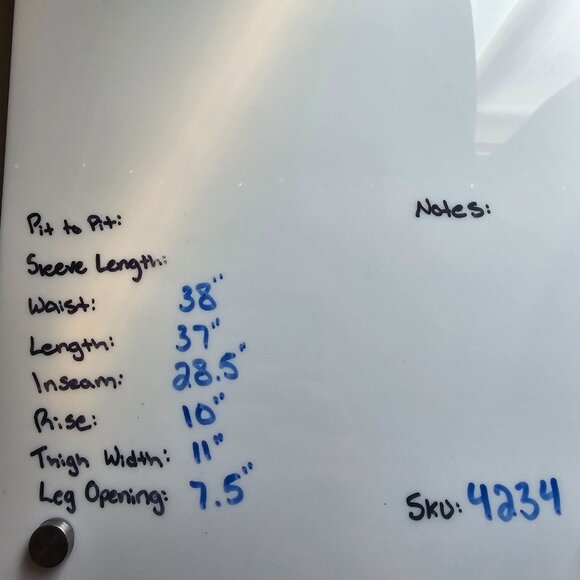 Pit to Pit:
Notes:
Sleeve Length:
Waist: 38"
Length: 37"
Inseam: 28.5"
Rise: 10"
Thigh Width: 11"
Leg Opening: 7.5"
SKU: 4234